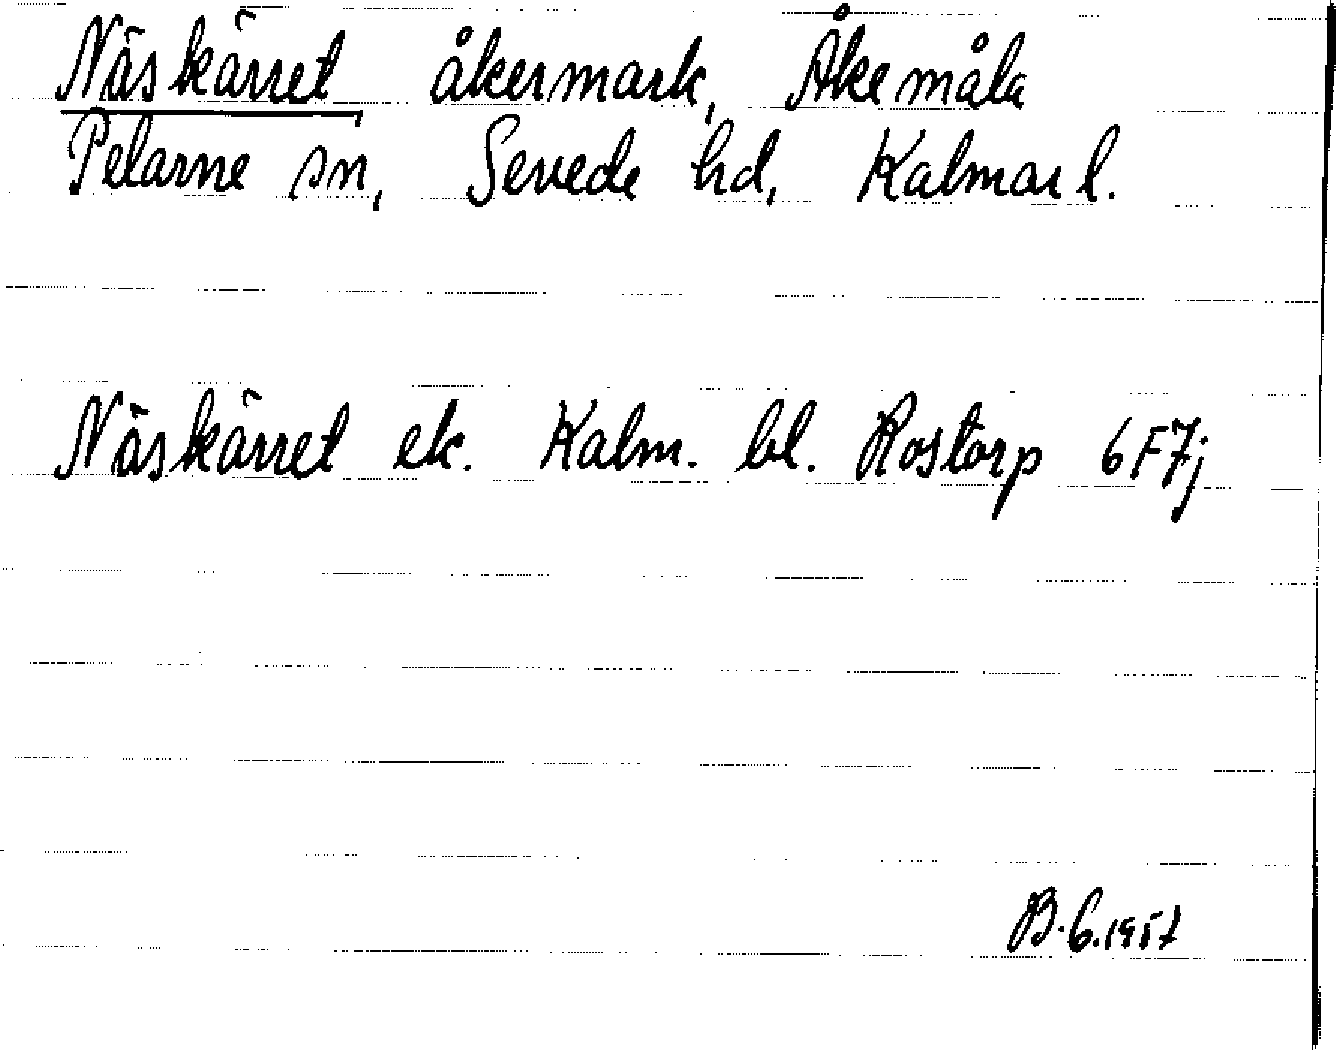 Näskärret åkermark, Åkemåla
Pelarne sn, Sevede hd, Kalmar l.
Näskärret ek. Kalm. bl. Rostorp 6F7j
B.G.1957